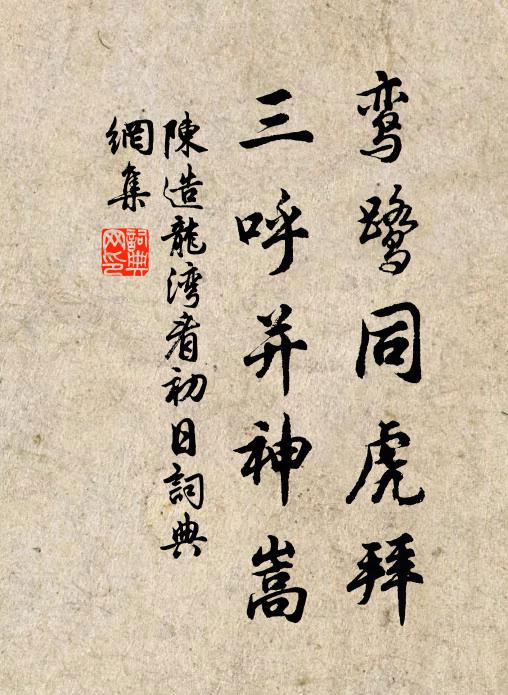 鸾鹭同虎拜
三呼并神嵩
陳造龍湾看初日詞典
網集
詞典
网印